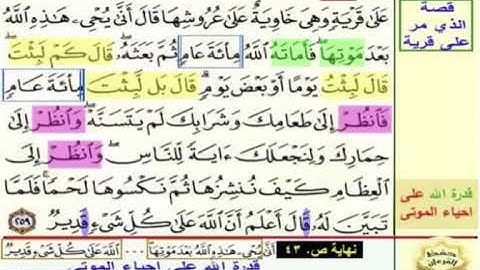 قصة
الذي مر
على قرية
عَلَىٰ قَرْيَةٍ وَهِىَ خَاوِيَةٌ عَلَىٰ عُرُوشِهَا قَالَ أَنَّىٰ يُحْىِۦ هَٰذِهِ ٱللَّهُ
بَعْدَ مَوْتِهَا فَأَمَاتَهُ ٱللَّهُ مِا۟ئَةَ عَامٍ ثُمَّ بَعَثَهُۥ قَالَ كَمْ لَبِثْتَ
قَالَ لَبِثْتُ يَوْمًا أَوْ بَعْضَ يَوْمٍ قَالَ بَل لَّبِثْتَ مِا۟ئَةَ عَامٍ
فَٱنظُرْ إِلَىٰ طَعَامِكَ وَشَرَابِكَ لَمْ يَتَسَنَّهْ وَٱنظُرْ إِلَىٰ
حِمَارِكَ وَلِنَجْعَلَكَ ءَايَةً لِّلنَّاسِ وَٱنظُرْ إِلَى
ٱلْعِظَامِ كَيْفَ نُنشِزُهَا ثُمَّ نَكْسُوهَا لَحْمًا فَلَمَّا
تَبَيَّنَ لَهُۥ قَالَ أَعْلَمُ أَنَّ ٱللَّهَ عَلَىٰ كُلِّ شَىْءٍ قَدِيرٌ ٢٥٩
قدرة الله على
احياء الموتى
أَنَّىٰ يُحْىِۦ هَٰذِهِ ٱللَّهُ بَعْدَ مَوْتِهَا ... ٱللَّهَ عَلَىٰ كُلِّ شَىْءٍ قَدِيرٌ
نهاية ص. ٤٣
قدرة الله على احياء الموتى